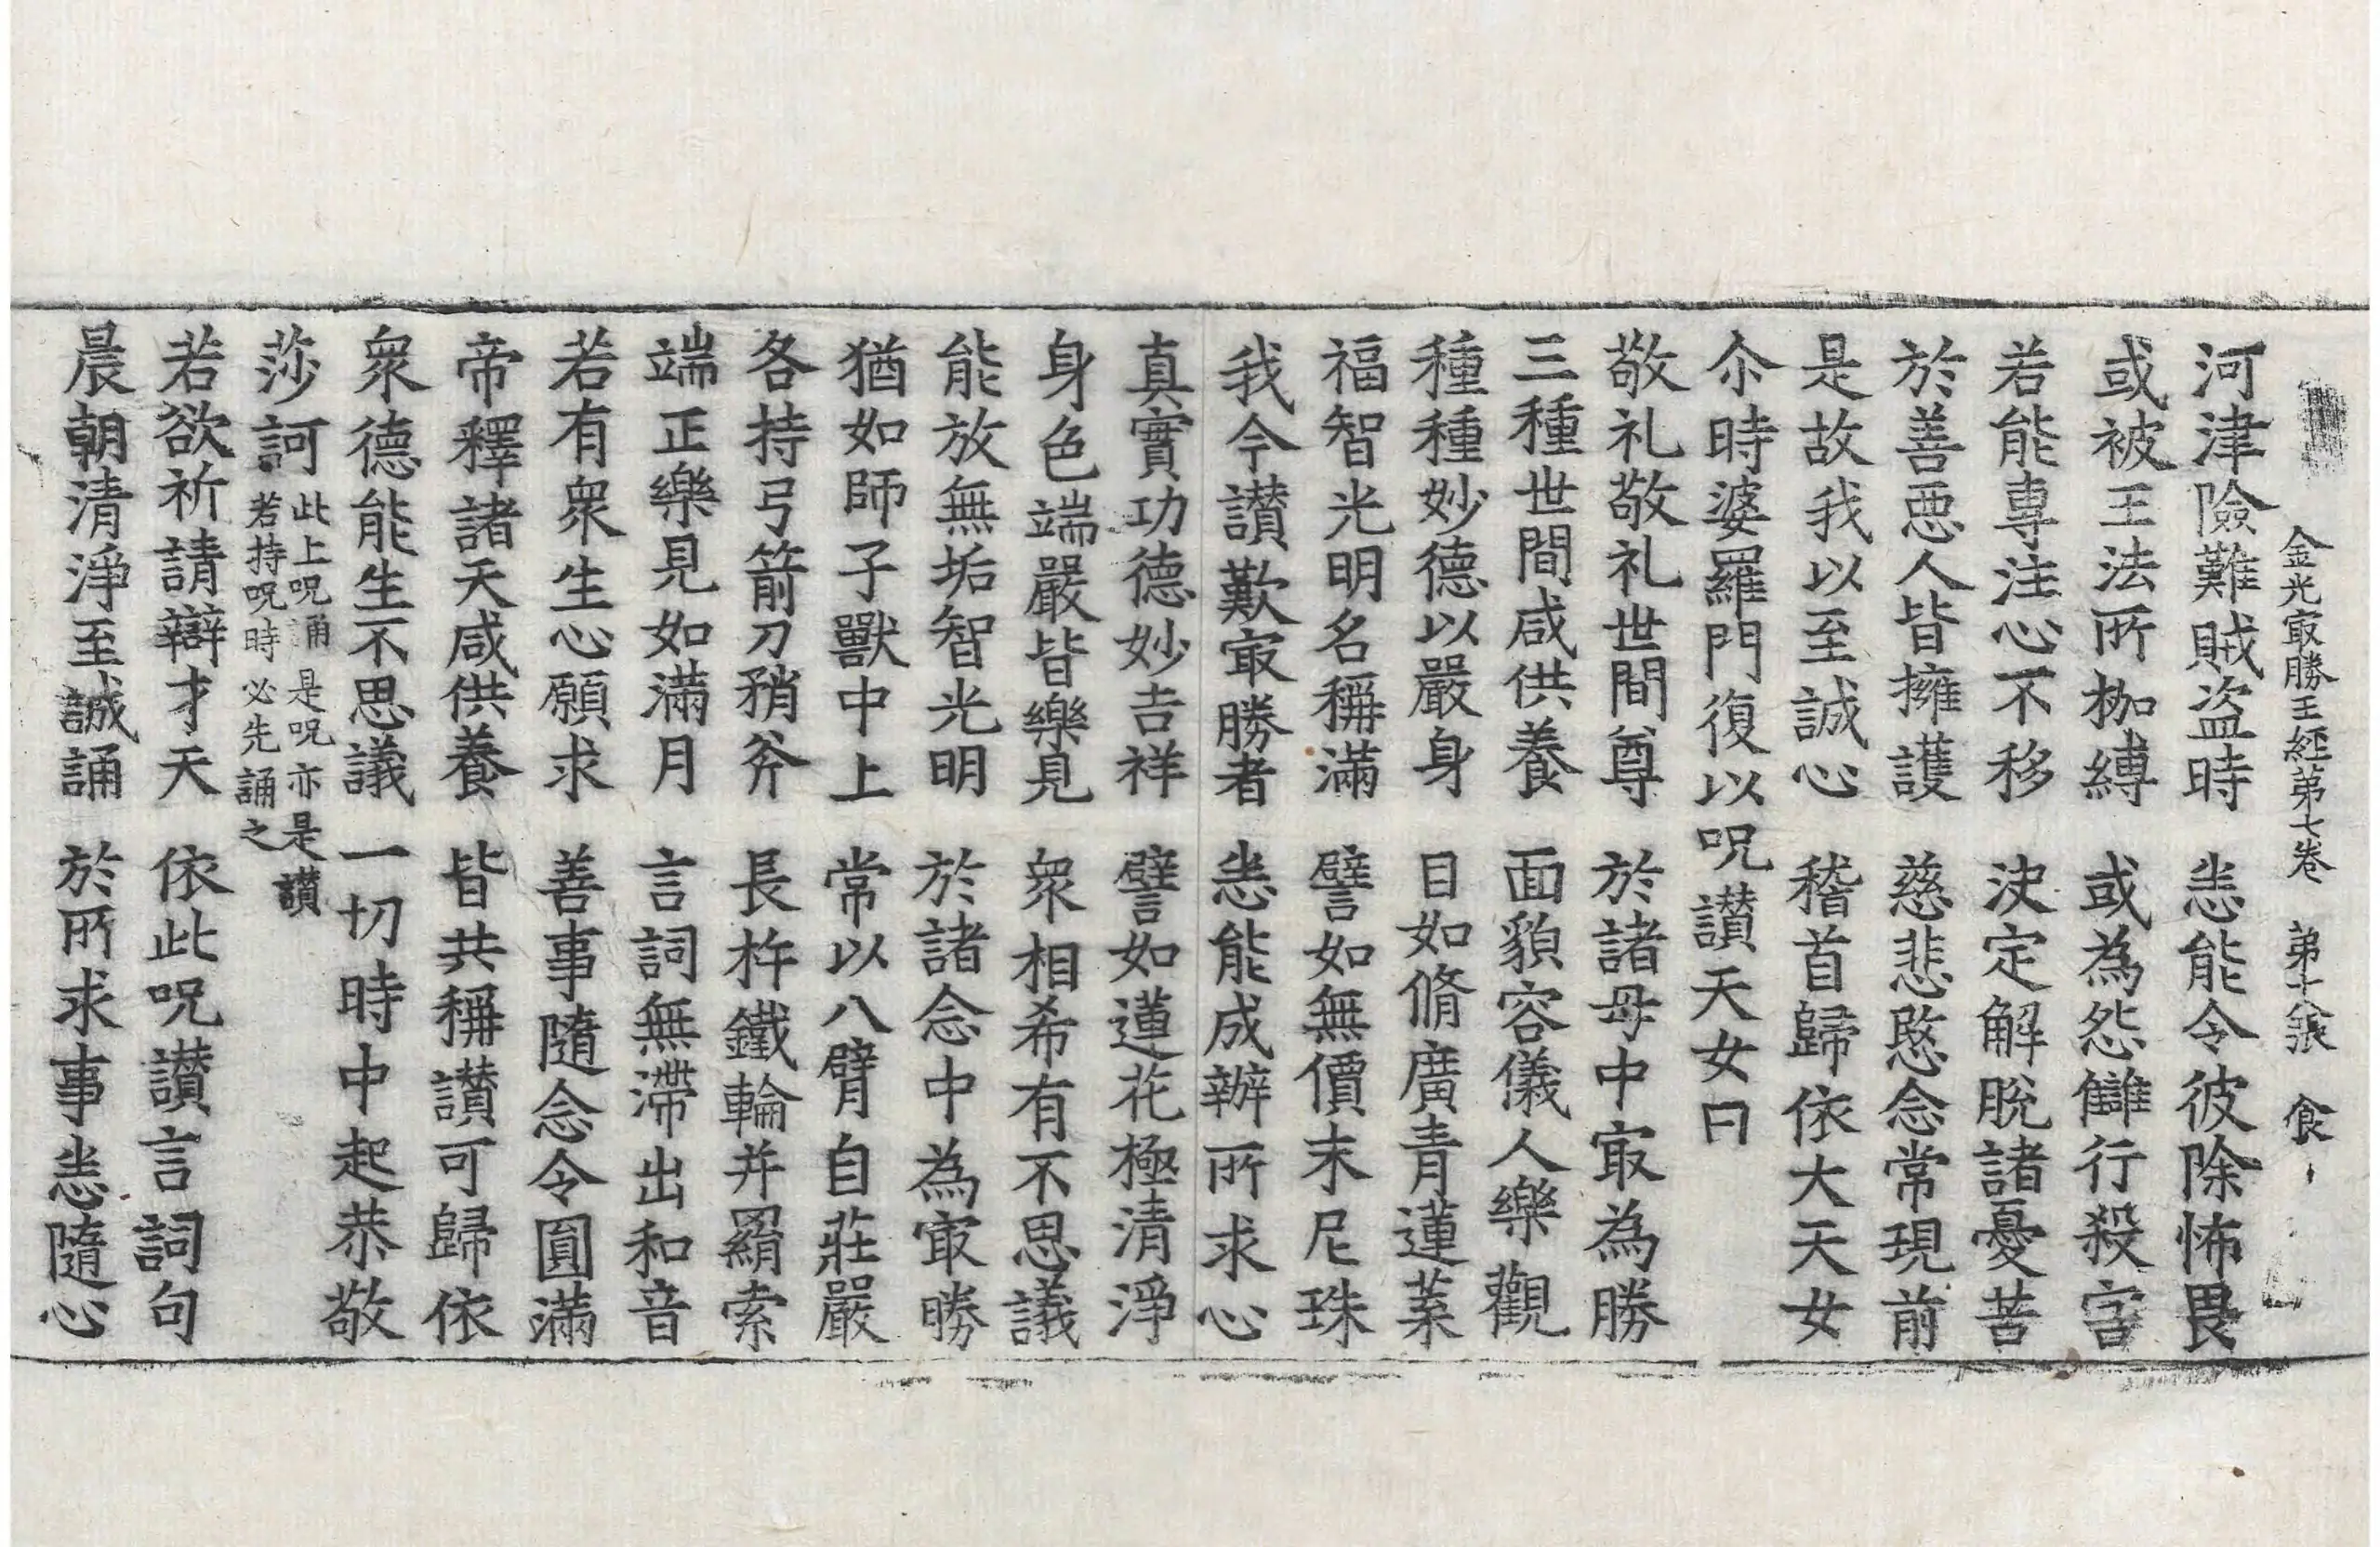 金光冣勝王經苐七卷　苐十八張　食
河津險難賊盜時　恙能令彼除怖畏
或被王法所枷縛　或為怨讎行殺害
若能專注心不移　決定解脫諸憂苦
於善惡人皆擁護　慈悲愍念常現前
是故我以至誠心　稽首歸依大天女
尒時婆羅門復以呪讃天女曰
敬礼敬礼世間尊　於諸母中冣為勝
三種世間咸供養　面貌容儀人樂觀
種種妙德以嚴身　目如脩廣青蓮葉
福智光明名稱滿　譬如無價末尼珠
我今讃歎冣勝者　恙能成辦所求心
真實功德妙吉祥　譬如蓮花極清淨
身色端嚴皆樂見　衆相希有不思議
能放無垢智光明　於諸念中為冣勝
猶如師子獸中上　常以八臂自莊嚴
各持弓箭刀矟斧　長杵鐵輪并羂索
端正樂見如滿月　言詞無滯出和音
若有衆生心願求　善事隨念令圓滿
帝釋諸天咸供養　皆共稱讃可歸依
衆德能生不思議　一切時中起恭敬
莎訶 此上呪誦是呪亦是讃
若持呪時必先誦之
若欲祈請辯才天　依此呪讃言詞句
晨朝清淨至誠誦　於所求事恙隨心